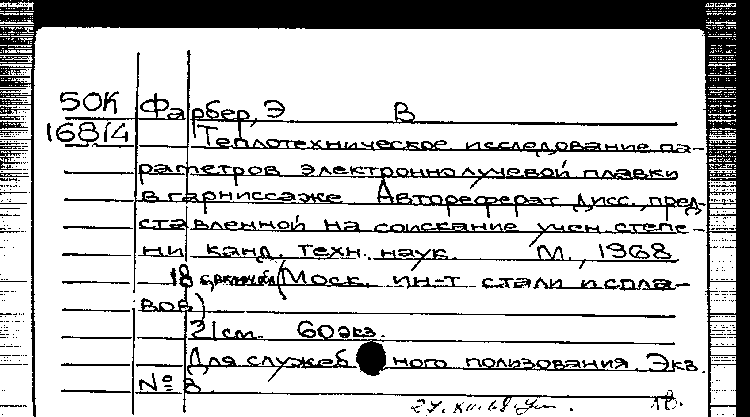 50К Фарбер, Э В
168/4 Теплотехническое исследование па-
раметров электроннолучевой плавки
в гарниссаже Автореферат дисс., пред-
ставленной на соискание учен. степе-
ни канд. техн. наук. М., 1968
18 с. (Моск. ин-т стали и спла-
вов)
21 см. 60 экз.
Для служебного ползования. Экз.
№ 8.
18.